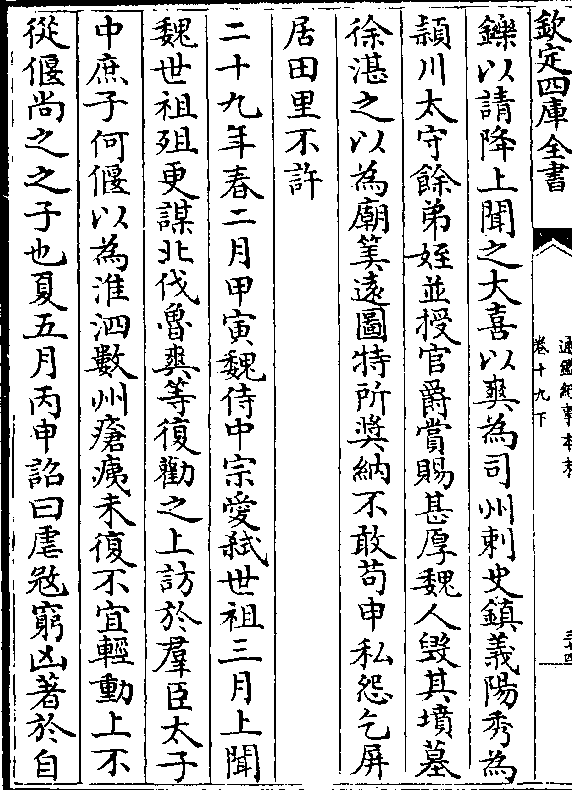 欽定四庫全書
通鑑紀事本末
卷十九下
三十四
鑠以請降上聞之大喜以爽為司州刺史鎮義陽秀為
潁川太守餘弟姪並授官爵賞賜甚厚魏人毀其墳墓
徐湛之以為廟筭遠圖特所奬納不敢苟申私怨乞屏
居田里不許
二十九年春二月甲寅魏侍中宗愛弑世祖三月上聞
魏世祖殂更謀北伐魯爽等復勸之上訪於羣臣太子
中庶子何偃以為淮泗數州瘡痍未復不宜輕動上不
從偃尚之之子也夏五月丙申詔曰虐虜窮凶著於自